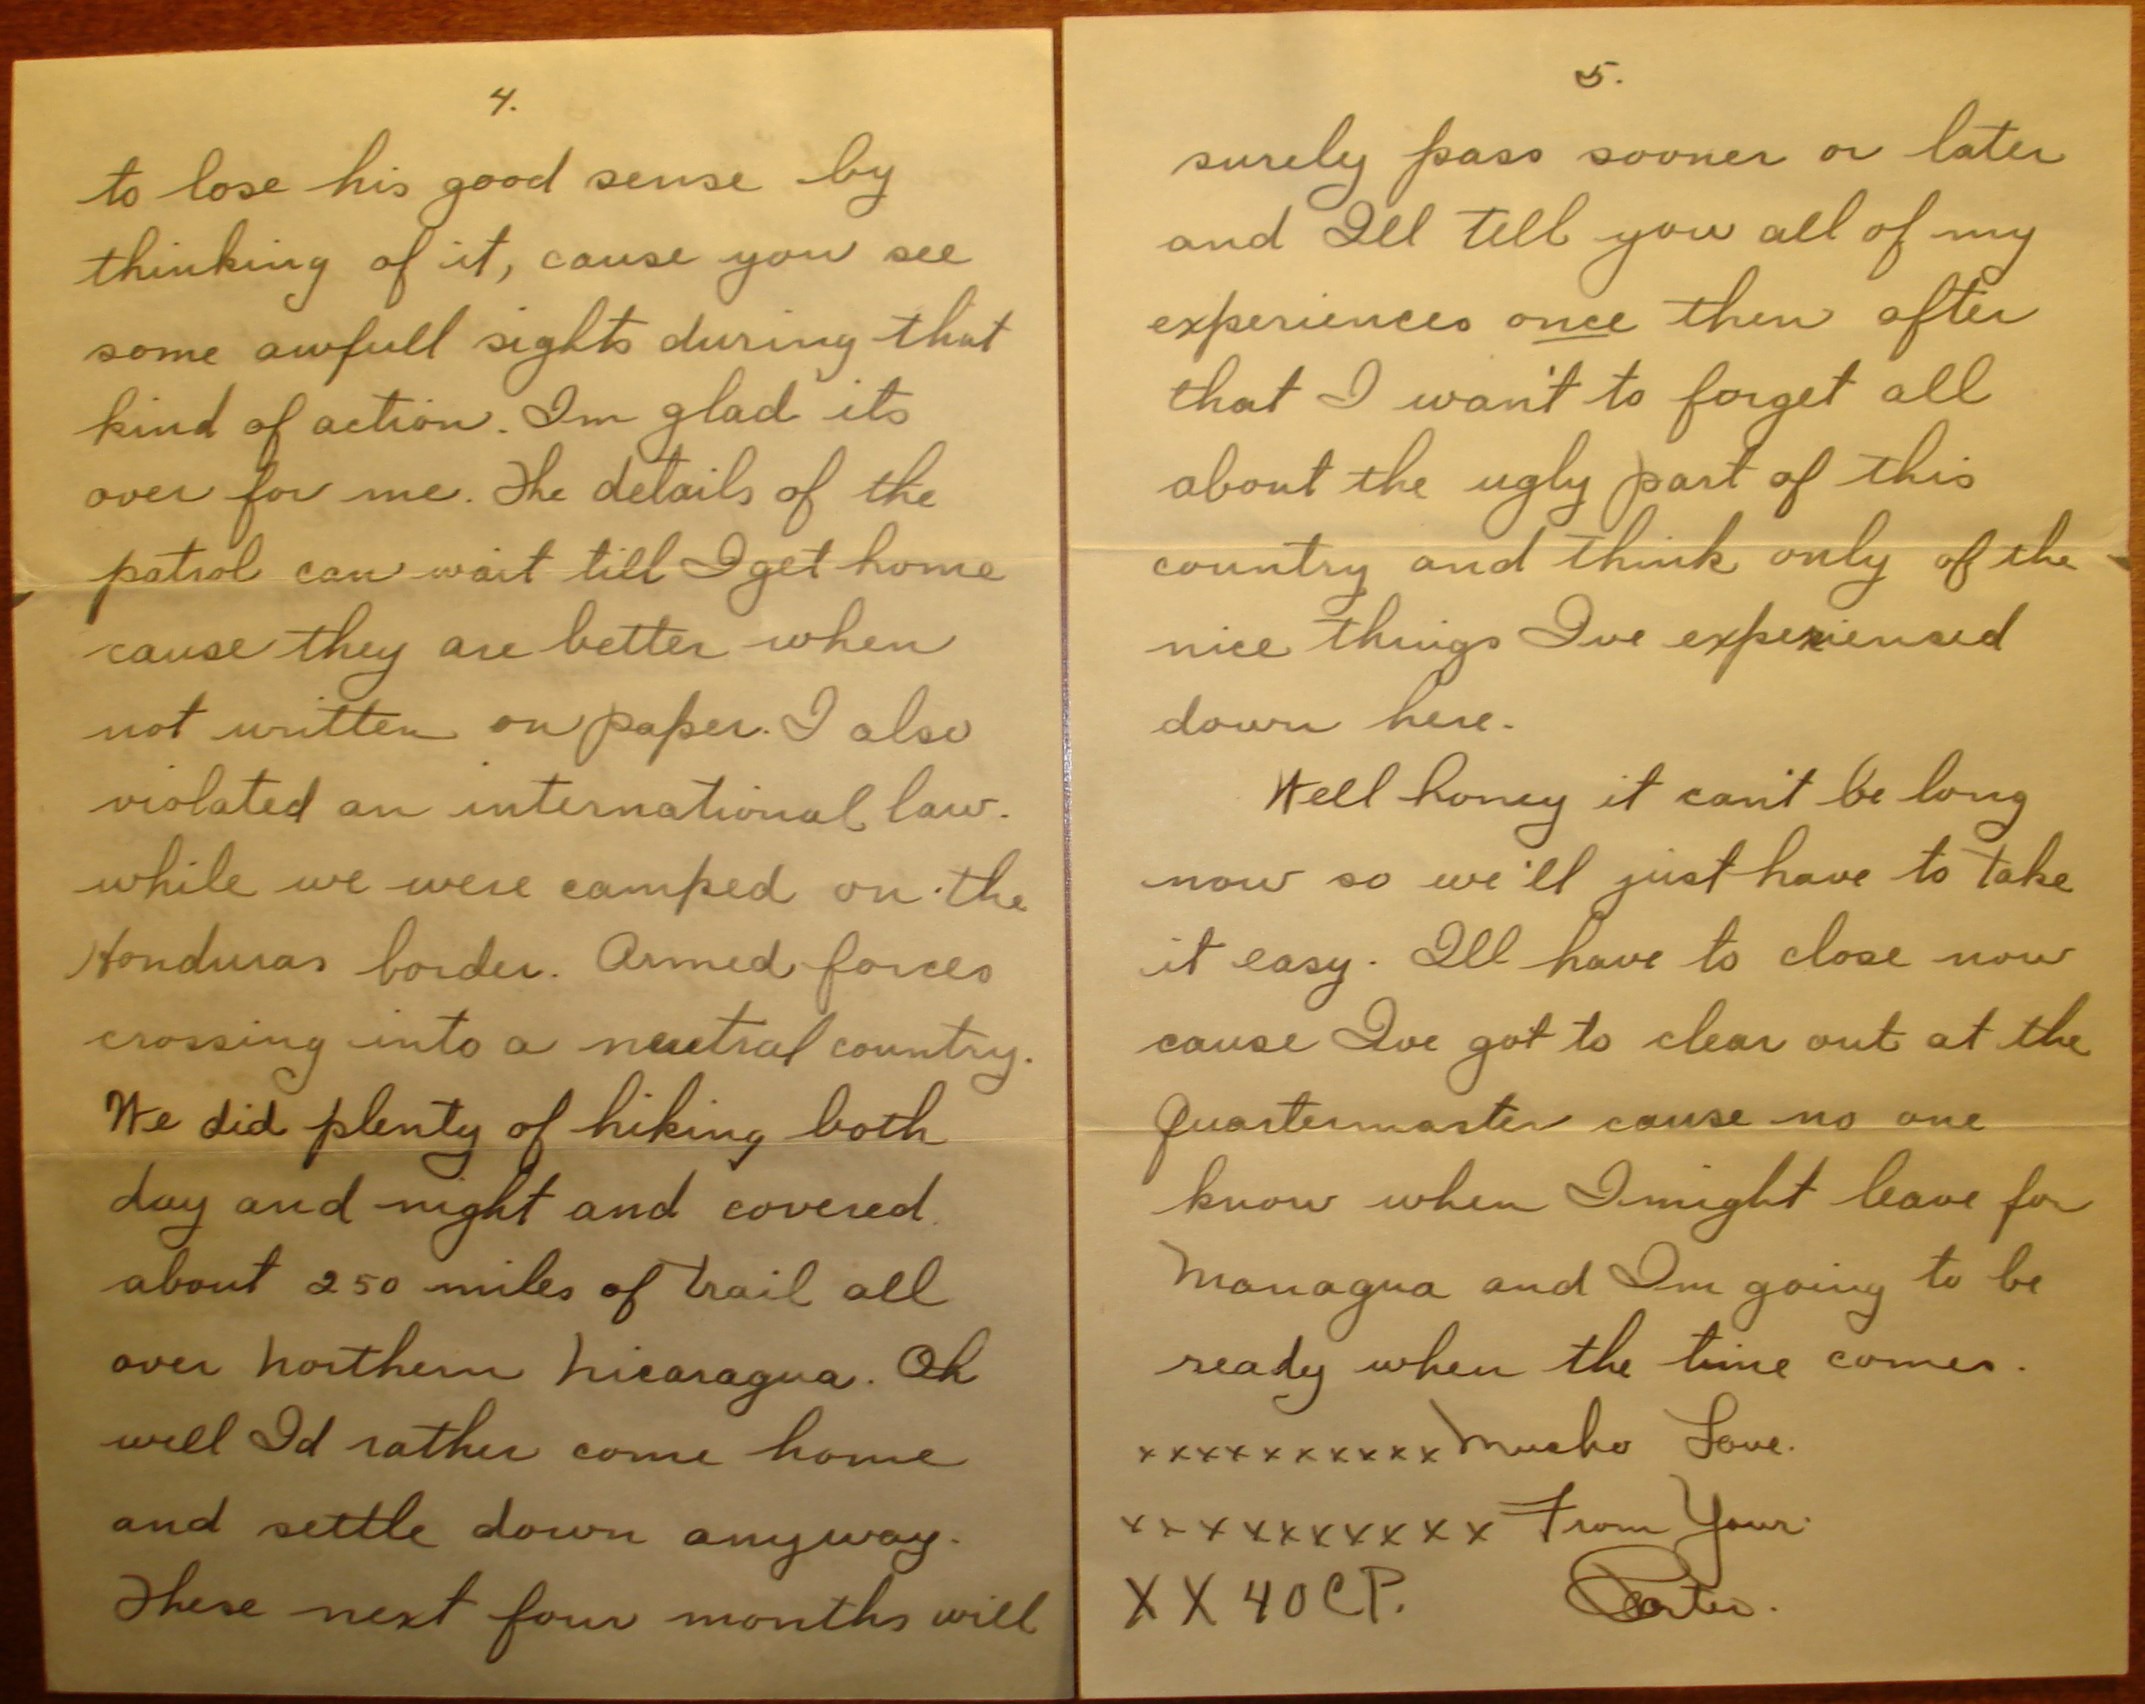 4.
to lose his good sense by
thinking of it, cause you see
some awfull sights during that
kind of action. Im glad its
over for me. The details of the
patrol can wait till I get home
cause they are better when
not written on paper. I also
violated an international law.
while we were camped on the
Honduras border. Armed forces
crossing into a neutral country.
We did plenty of hiking both
day and night and covered
about 250 miles of trail all
over Northern Nicaragua. Oh
well Id rather come home
and settle down anyway.
These next four months will
5.
surely pass sooner or later
and Ill tell you all of my
experiences once then after
that I wan't to forget all
about the ugly part of this
country and think only of the
nice things Ive experiensed
down here.
Well honey it can't be long
now so we'll just have to take
it easy. Ill have to close now
cause Ive got to clear out at the
Quartermaster cause no one
know when I might leave for
Managua and Im going to be
ready when the time comes.
xxxxxxxxxx Mucho Love.
xxxxxxxxxx From Your
XX 40 C P. Porter.